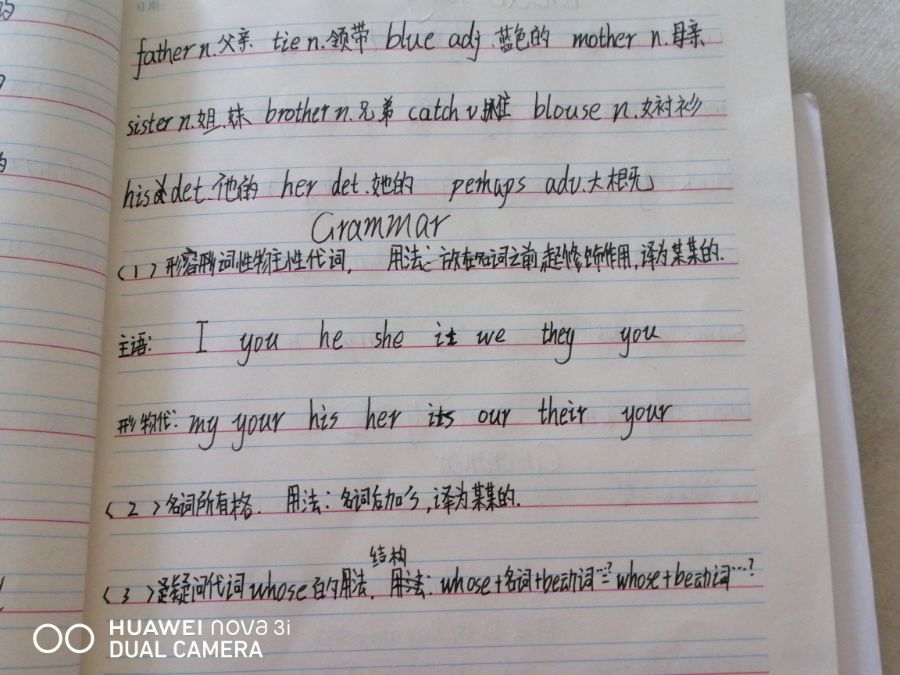 日期:
father n.父亲 tie n.领带 blue adj.蓝色的 mother n.母亲
sister n.姐.妹 brother n.兄弟 catch v.抓住 blouse n.女衬衫
his det.他的 her det.她的 perhaps adv.大概
Grammar
(1)形容词性物主性代词. 用法:放在名词之前,起修饰作用,译为某某的.
主语: I you he she it we they you
形物代: my your his her its our their your
(2)名词所有格. 用法:名词后加's,译为某某的.
结构
(3)疑问代词whose的用法. 用法:whose+名词+be动词…?=whose+be动词…?
HUAWEI nova 3i
DUAL CAMERA